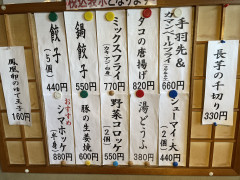 税込表示となります
手羽先&
ガーリックフライ
660円
シューマイ・大
(2個)
440円
タコの唐揚げ
820円
湯どうふ
380円
ミックスフライ
770円
野菜コロッケ
(2個)
550円
鍋餃子
550円
豚の生姜焼
600円
餃子
(5個)
440円
おすすめ
シマホッケ
(半身)
880円
長芋の千切り
330円
鳳凰卵のゆで王子
160円